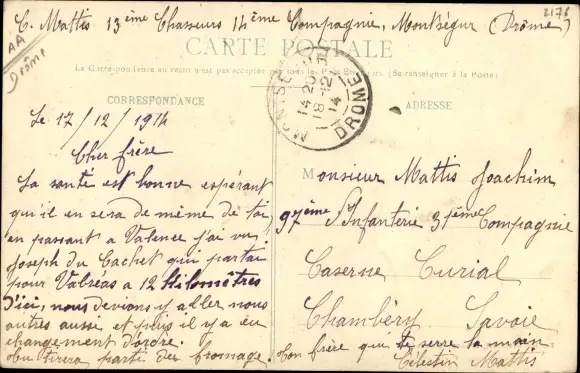 C. Mattis 13ème Chasseurs 14ème Compagnie, Montségur (Drôme)
2176
AA
Drôme
CARTE POSTALE
La Correspondance au recto n'est pas acceptée par tous les Pays Étrangers. (Se renseigner à la Poste)
CORRESPONDANCE
ADRESSE
14 20
18 - 12
14
DROME
Le 17/12/1914
Cher frère
La santé est bonne espérant
qu'il en sera de même de toi
en passant a Valence j'ai vu
Joseph du Cachet qui partai
pour Valréas a 12 kilomètres
d'ici, nous devions y aller nous
autres aussi et puis il y a eu
changement d'ordre.
tu tirera parti du fromage.
Monsieur Mattis Joachim
97ème d'Infanterie 31ème Compagnie
Caserne Curial
Chambéry Savoie
Ton frère qui te serre la main
Célestin Mattis